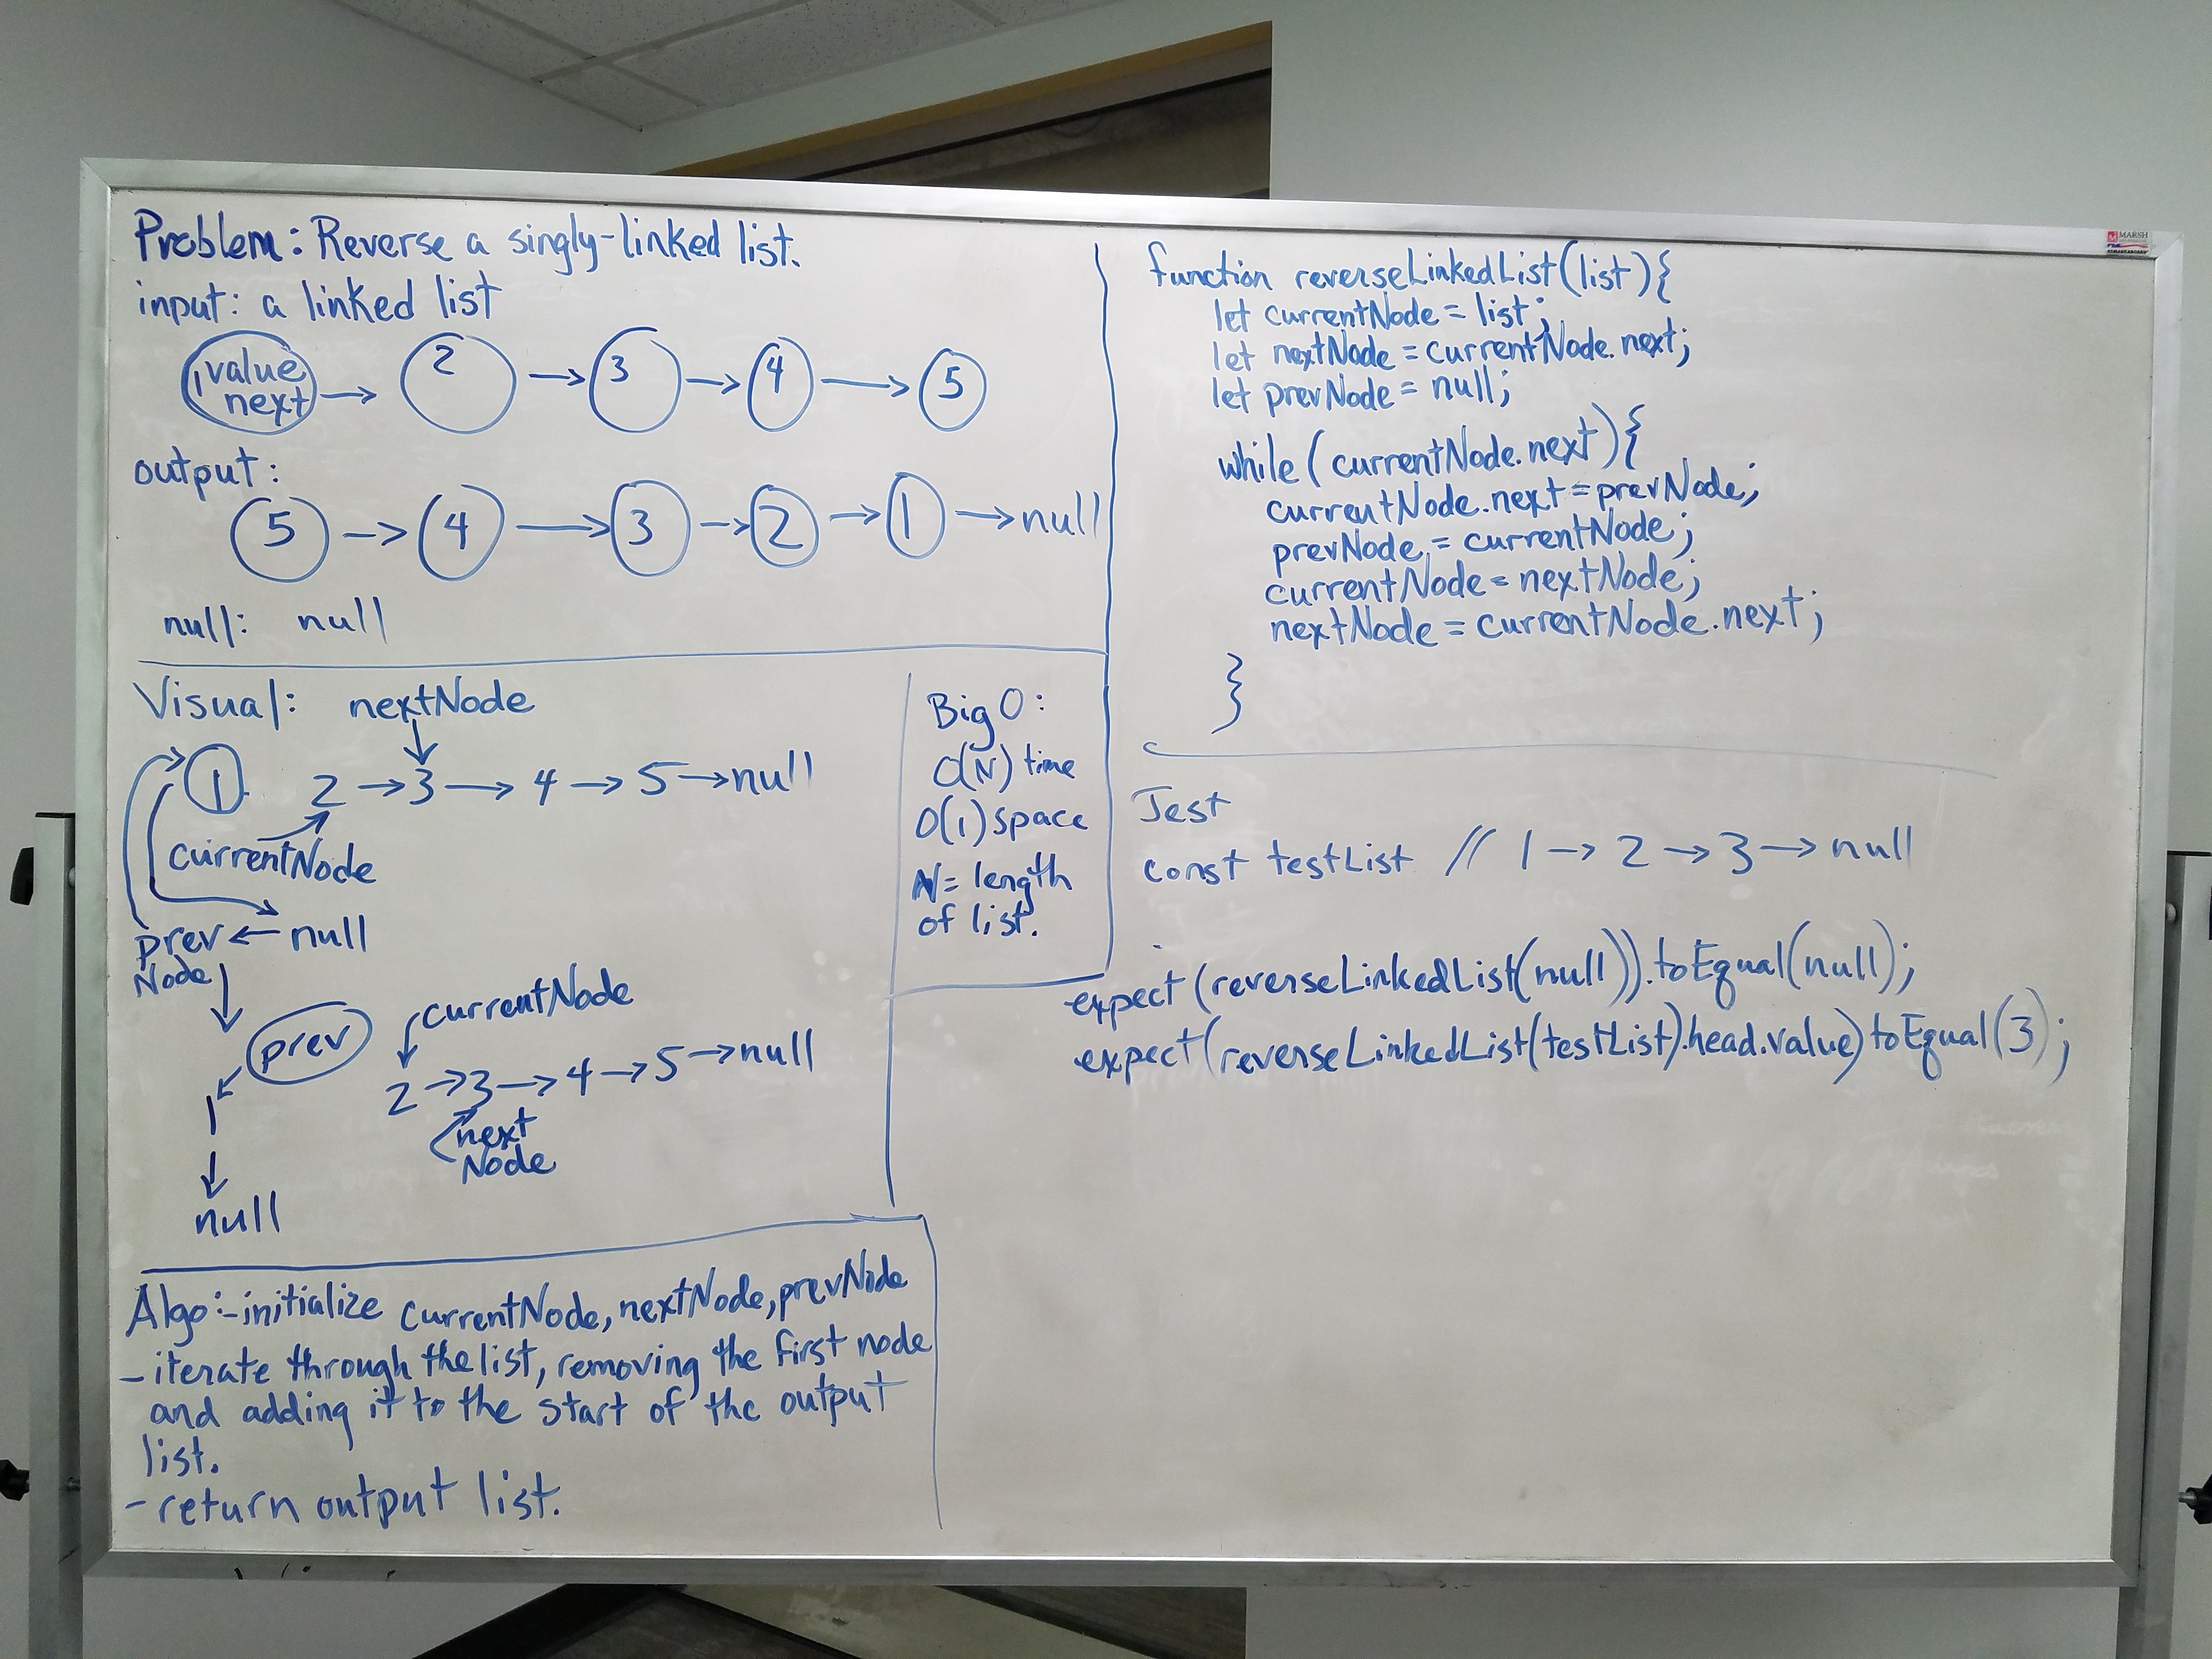 Problem: Reverse a singly-linked list.
input: a linked list
1 value next → 2 → 3 → 4 → 5
output:
5 → 4 → 3 → 2 → 1 → null
null: null
Visual: nextNode
1 2 → 3 → 4 → 5 → null
currentNode
prev ← null
Node
prev
currentNode
2 → 3 → 4 → 5 → null
1
next
Node
null
Big O:
O(N) time
O(1) space
N = length
of list.
Algo:-initialize currentNode, nextNode, prevNode
- iterate through the list, removing the first node
and adding it to the start of the output
list.
- return output list.
function reverseLinkedList(list){
let currentNode = list;
let nextNode = currentNode.next;
let prevNode = null;
while(currentNode.next){
currentNode.next = prevNode;
prevNode = currentNode;
currentNode = nextNode;
nextNode = currentNode.next;
}
Test
const testList // 1 → 2 → 3 → null
expect(reverseLinkedList(null)).toEqual(null);
expect(reverseLinkedList(testList).head.value)toEqual(3);
MARSH